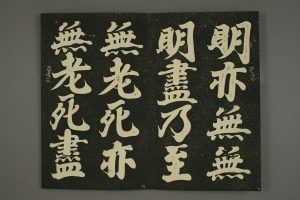 明亦無無
明盡乃至
無老死亦
無老死盡